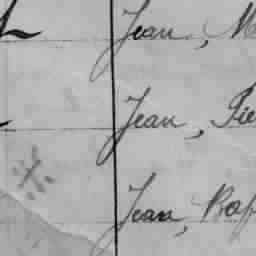 Jean, M
Jean, Pie
Jean, Rap